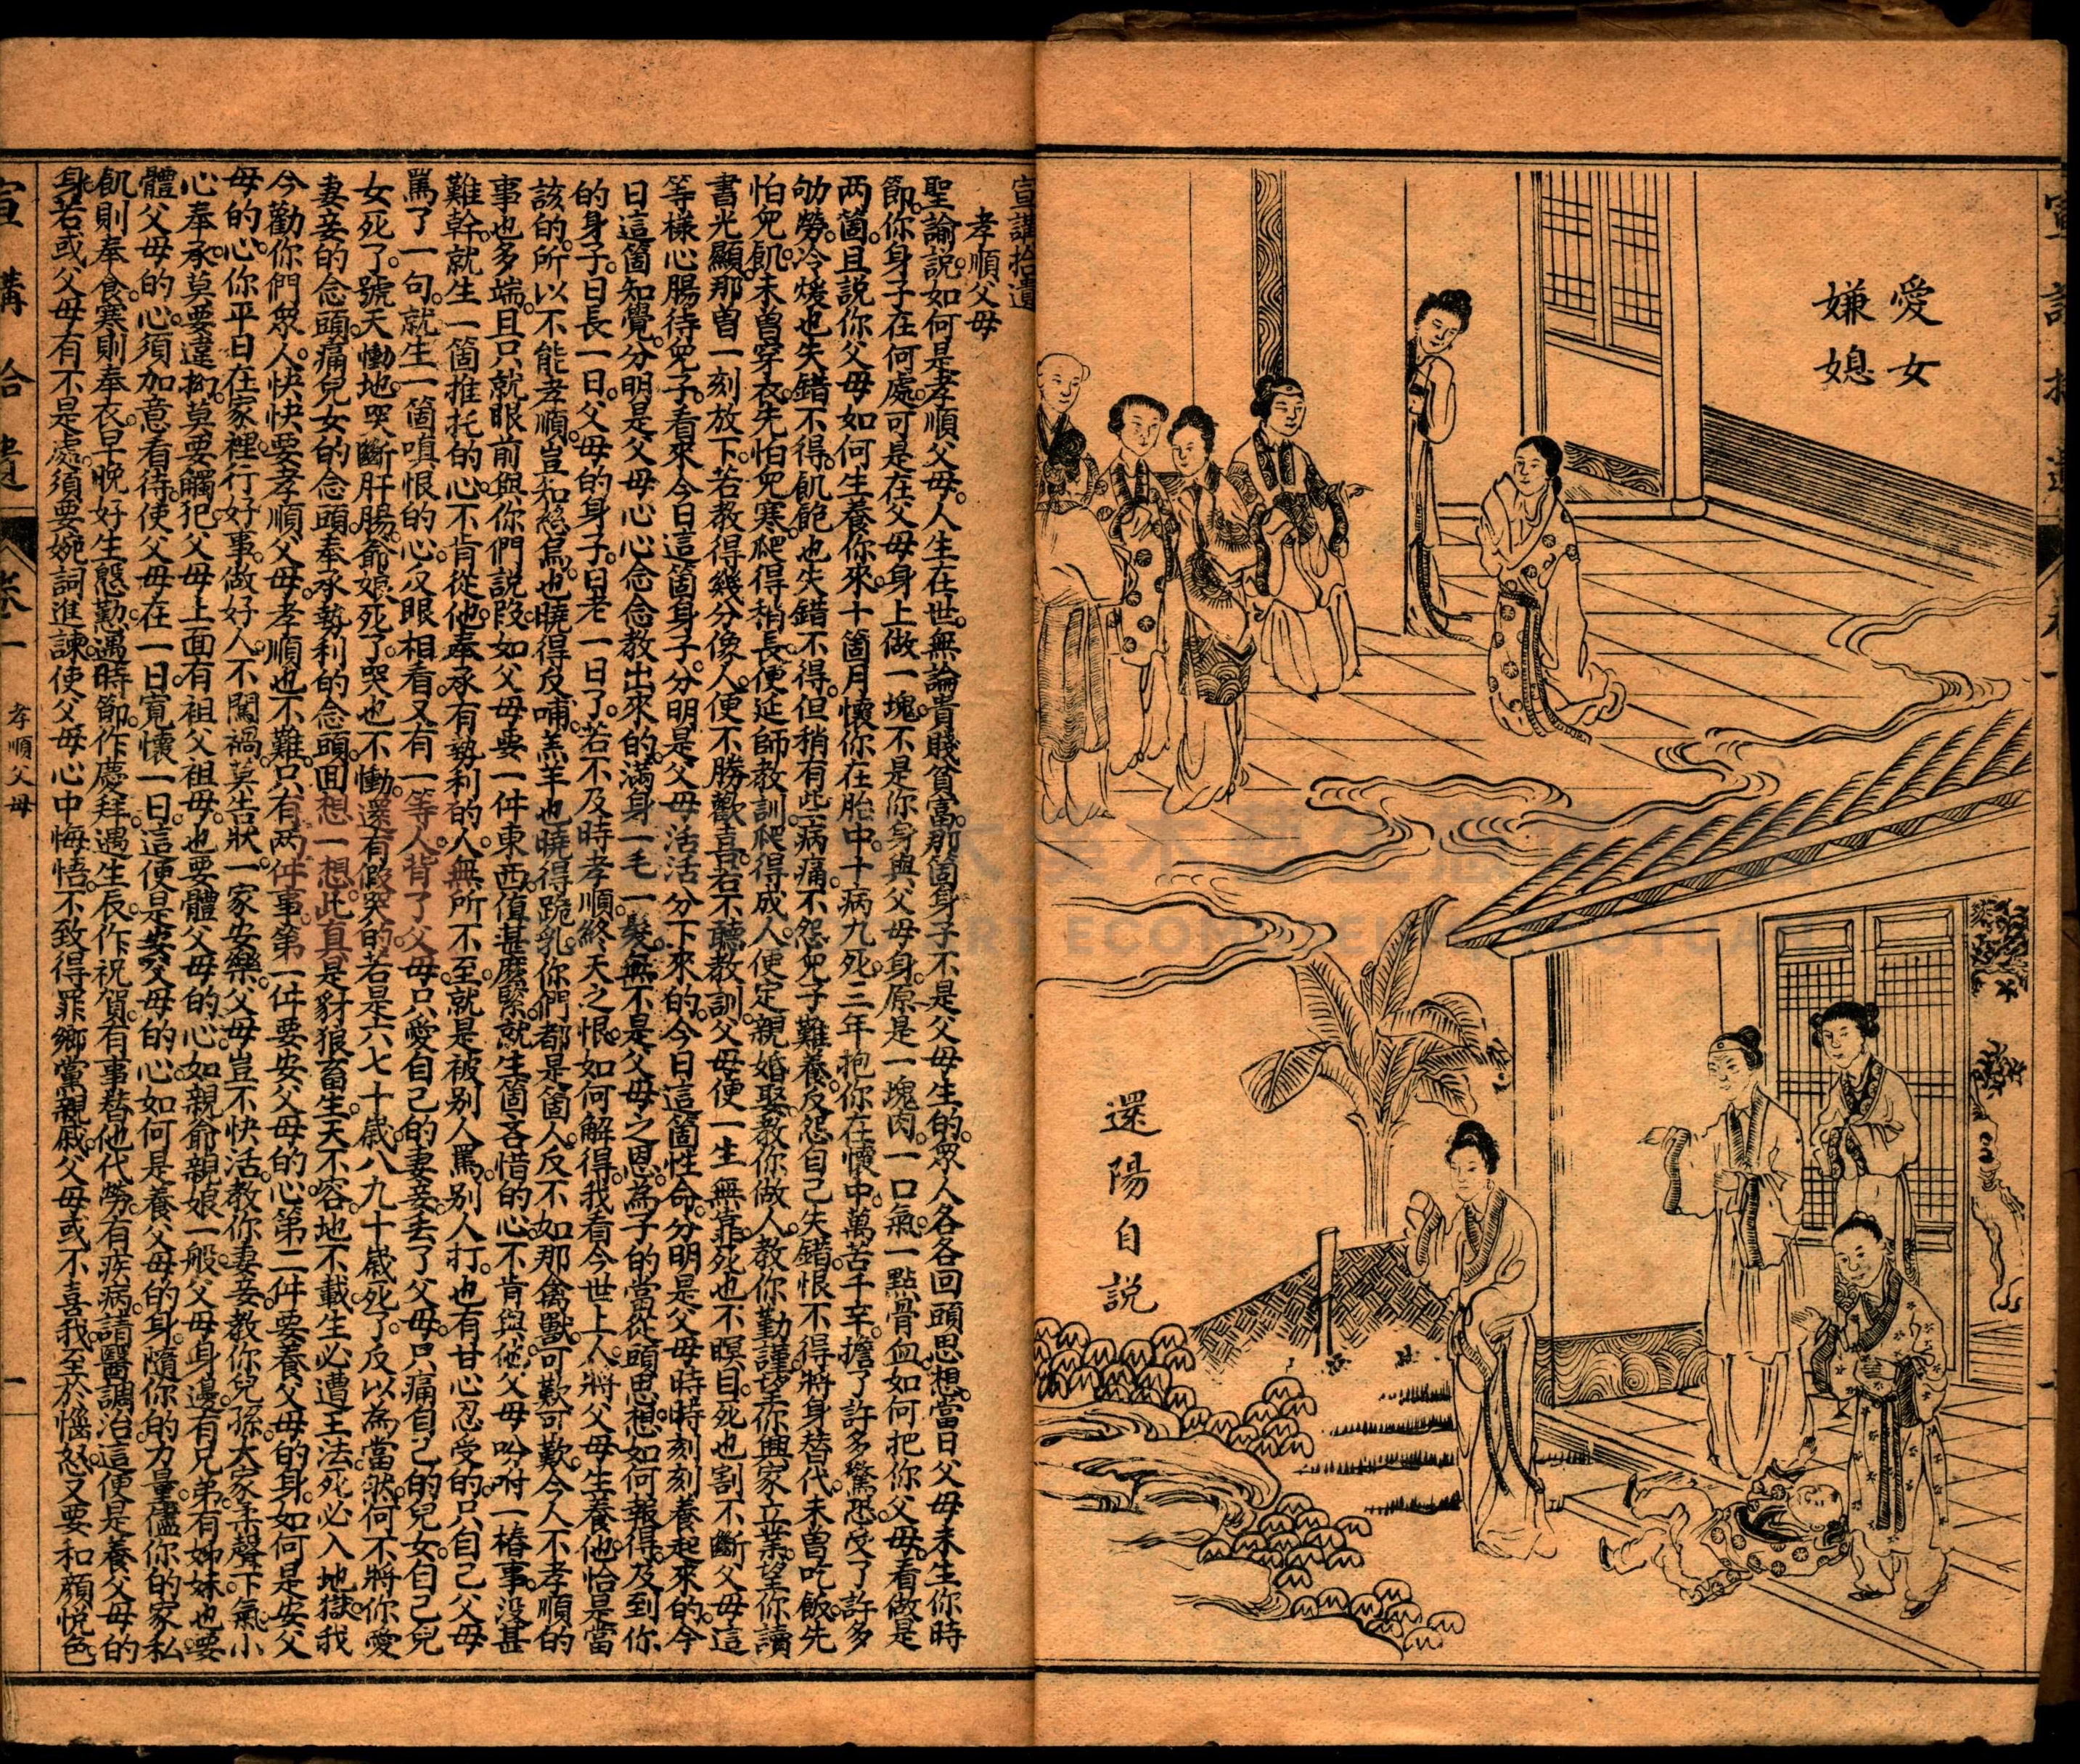 愛女
嫌媳
還陽自説
宣講拾遺
孝順父母
聖諭説如何是孝順父母。人生在世。無論貴賤貧富。那箇身子不是父母生的。眾人各各回頭思想。當日父母未生你時
節。你身子在何處。可是在父母身上做一塊。不是你身與父母身。原是一塊肉。一口氣。一點骨血。如何把你父母。看做是
两箇。且説你父母如何生養你來。十箇月懷你在胎中。十病九死。三年抱你在懷中。萬苦千辛。擔了許多驚恐。受了許多
劬勞。冷煖也失錯不得。飢飽也失錯不得。但稍有些病痛。不怨兒子難養。反怨自己失錯。恨不得將身替代。未曾吃飯。先
怕兒飢。未曾穿衣。先怕兒寒。爬得稍長。便延師教訓。爬得成人。便定親婚娶。教你做人。教你勤謹。望你興家立業。望你讀
書光顯。那曾一刻放下。若教得幾分像人。便不勝歡喜。若不聽教訓。父母便一生無靠。死也不瞑目。死也割不斷。父母這
等樣心腸待兒子。看來今日這箇身子。分明是父母活活分下來的。今日這箇性命。分明是父母時時刻刻養起來的。今
日這箇知覺。分明是父母心心念念教出來的。滿身一毛一髮。無不是父母之恩。為子的當從頭思想。如何報得。及到你
的身子。日長一日。父母的身子。日老一日了。若不及時孝順。終天之恨。如何解得。我看今世上人。將父母生養他。恰是當
該的。所以不能孝順。豈知慈烏也曉得反哺。羔羊也曉得跪乳。你們都是箇人。反不如那禽獸。可歎可歎。今人不孝順的
事也多端。且只就眼前與你們説。叚如父母要一件東西。值甚麼緊。就生箇吝惜的心。不肯與他。父母吩咐一樁事。没甚
難幹。就生一箇推托的心。不肯從他。奉承有勢利的人。無所不至。就是被别人罵。别人打。也有甘心忍受的。只自己父母
罵了一句。就生一箇嗔恨的心。反眼相看。又有一等人。背了父母。只愛自己的妻妾。丟了父母。只痛自己的兒女。自己兒
女死了。號天慟地。哭斷肝腸。爺娘死了。哭也不慟。還有假哭的。若是六七十歲。八九十歲死了。反以為當然。何不將你愛
妻妾的念頭。痛兒女的念頭。奉承勢利的念頭。回想一想。此真是豺狼畜生。天不容。地不載。生必遭王法。死必入地獄。我
今勸你們眾人。快快要孝順父母。孝順也不難。只有两件事。第一件要安父母的心。第二件要養父母的身。如何是安父
母的心。你平日在家裡。行好事。做好人。不闖禍。莫告狀。一家安樂。父母豈不快活。教你妻妾。教你兒孫。大家柔聲下氣。小
心奉承。莫要違拗。莫要觸犯。父母上面有祖父祖母。也要體父母的心。如親爺親娘一般。父母身邊。有兄弟。有姊妹。也要
體父母的心。須加意看待。使父母在一日。寬懷一日。這便是安父母的心。如何是養父母的身。隨你的力量。儘你的家私。
飢則奉食。寒則奉衣。早晚好生慇勤。遇時節。作慶拜。遇生辰。作祝賀。有事替他代勞。有疾病。請醫調治。這便是養父母的
身。若或父母有不是處。須要婉詞進諫。使父母心中悔悟。不致得罪鄉黨親戚。父母或不喜我。至於惱怒。又要和顔悅色
宣講拾遺
卷一
孝順父母
一